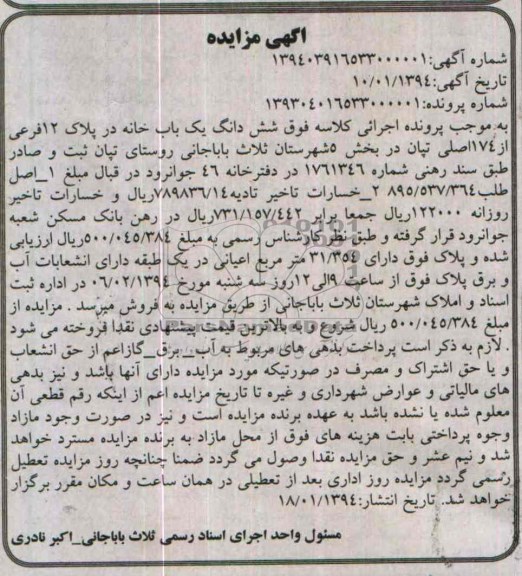 اگهی مزایده
شماره آگهی:۱۳۹٤۰۳۹۱٦٥۳۳۰۰۰۰۰۱
تاریخ آگهی:۱۰/۰۱/۱۳۹٤
شماره پرونده:۱۳۹۳۰٤۰۱٦٥۳۳۰۰۰۰۰۱
به موجب پرونده اجرائی کلاسه فوق شش دانگ یک باب خانه در پلاک ۱۲فرعی
از۱۷٤اصلی تپان در بخش ٥شهرستان ثلاث باباجانی روستای تپان ثبت و صادر
طبق سند رهنی شماره ۱۷٦۱۳٤٦ در دفترخانه ٤٦ جوانرود در قبال مبلغ ۱_اصل
طلب۸۹٥/٥۳۷/۳٦٤ ۲_خسارات تاخیر تادیه۷۸۹۸۳٦/۱٤ریال و خسارات تاخیر
روزانه ۱۲۲۰۰۰ریال جمعا برابر ۷۳۱/۱٥۷/٤٤۲ریال در رهن بانک مسکن شعبه
جوانرود قرار گرفته و طبق نظر کارشناس رسمی به مبلغ ٥۰۰/۰٤٥/۳۸٤ریال ارزیابی
شده و پلاک فوق دارای ۳۱/۳٥٤ متر مربع اعیانی در یک طبقه دارای انشعابات آب
و برق پلاک فوق از ساعت ۹الی۱۲روز سه شنبه مورخ ۰٦/۰۲/۱۳۹٤ در اداره ثبت
اسناد و املاک شهرستان ثلاث باباجانی از طریق مزایده به فروش میرسد . مزایده از
مبلغ ٥۰۰/۰٤٥/۳۸٤ ریال شروع و به بالاترین قیمت پیشنهادی نقدا فروخته می شود
. لازم به ذکر است پرداخت بدهی های مربوط به آب_ برق_گازاعم از حق انشعاب
و یا حق اشتراک و مصرف در صورتیکه مورد مزایده دارای آنها باشد و نیز بدهی
های مالیاتی و عوارض شهرداری و غیره تا تاریخ مزایده اعم از اینکه رقم قطعی آن
معلوم شده یا نشده باشد به عهده برنده مزایده است و نیز در صورت وجود مازاد
وجوه پرداختی بابت هزینه های فوق از محل مازاد به برنده مزایده مسترد خواهد
شد و نیم عشر و حق مزایده نقدا وصول می گردد ضمنا چنانچه روز مزایده تعطیل
رسمی گردد مزایده روز اداری بعد از تعطیلی در همان ساعت و مکان مقرر برگزار
خواهد شد. تاریخ انتشار:۱۸/۰۱/۱۳۹٤
مسئول واحد اجرای اسناد رسمی ثلاث باباجانی_اکبر نادری